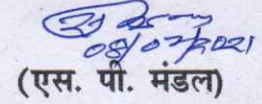 08/07/2021
(एस. पी. मंडल)